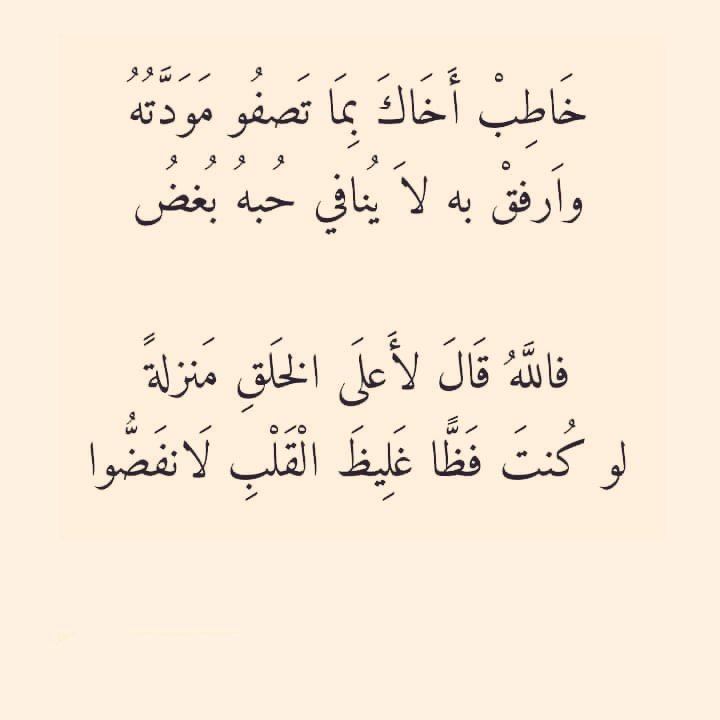 خَاطِبْ أَخَاكَ بِمَا تَصفُو مَوَدَّتُهُ
واَرفقْ به لاَ يُنافي حُبهُ بُغضُ
فاللَّهُ قَالَ لأَعلَى الخَلَقِ مَنزلةً
لو كُنتَ فَظًّا غَلِيظَ الْقَلْبِ لَانفَضُّوا